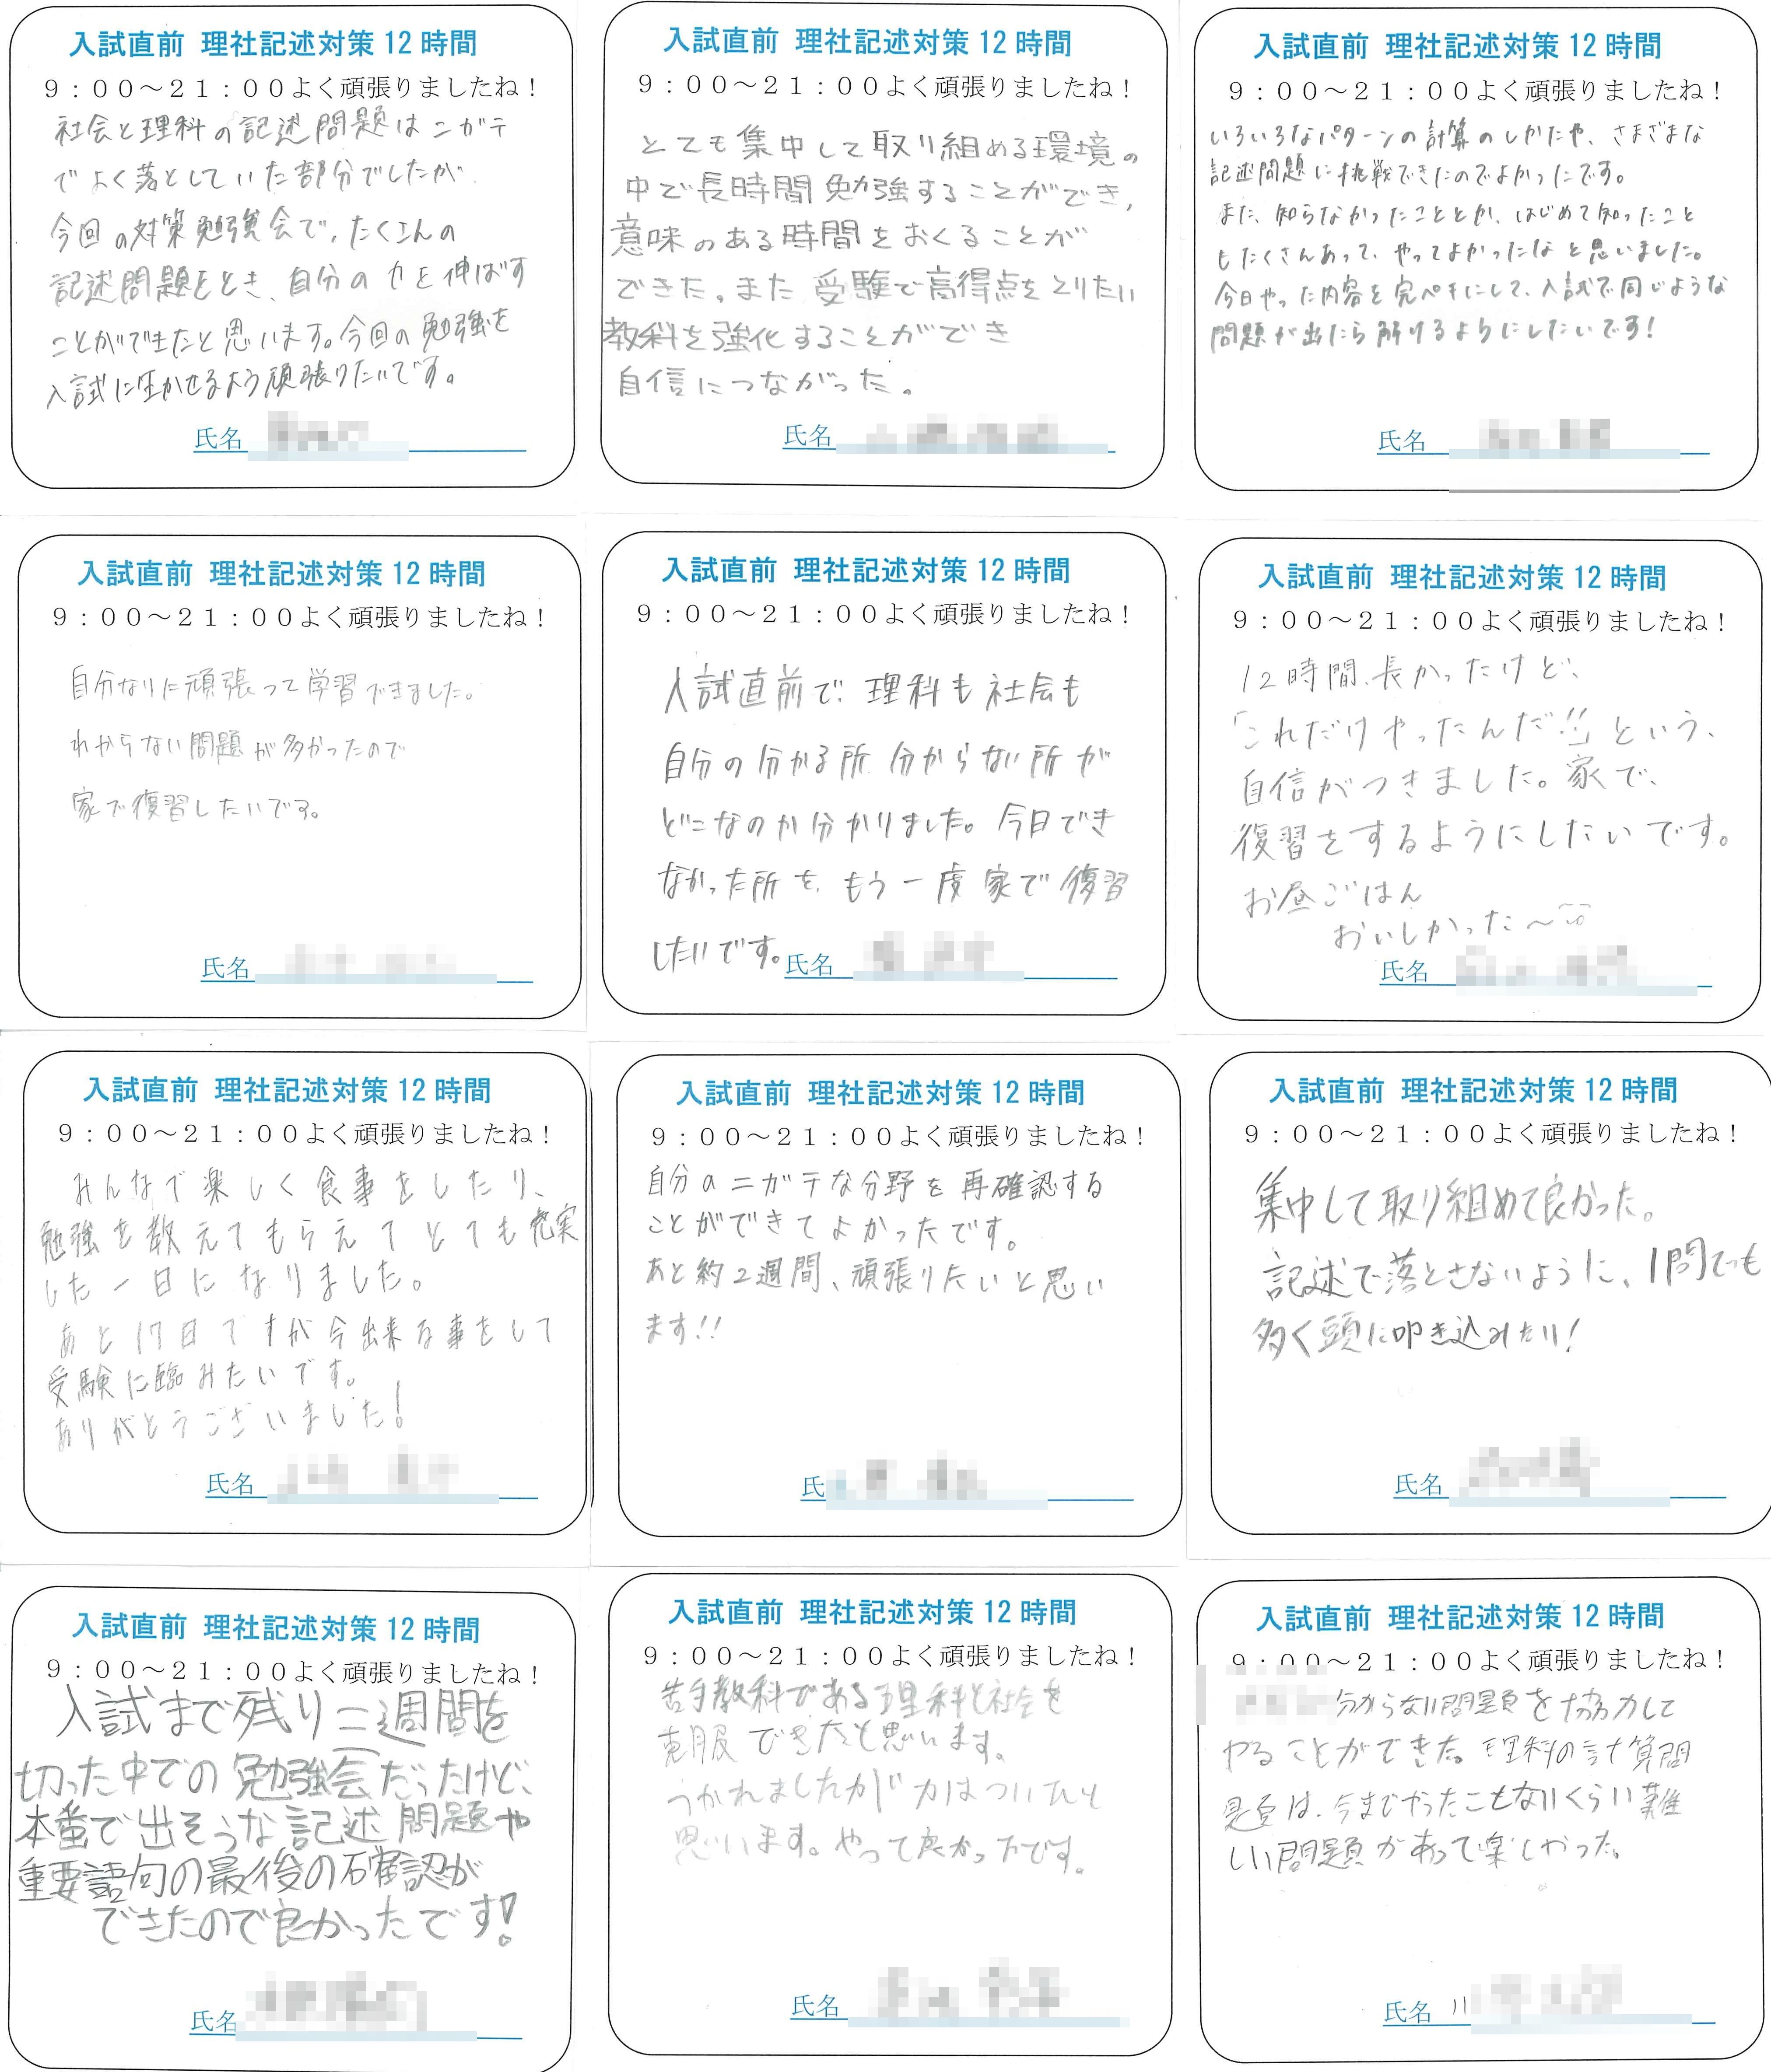 入試直前 理社記述対策12時間
9：00～21：00よく頑張りましたね！
社会と理科の記述問題はニガテ
でよく落としていた部分でしたが、
今回の対策勉強会で、たくさんの
記述問題をとき、自分の力を伸ばす
ことができたと思います。今回の勉強を
入試に生かせるよう頑張りたいです。
氏名
入試直前 理社記述対策12時間
9：00～21：00よく頑張りましたね！
とても集中して取り組める環境の
中で長時間勉強することができ,
意味のある時間をおくることが
できた。また受験で高得点をとりたい
教科を強化することができ
自信につながった。
氏名
入試直前 理社記述対策12時間
9：00～21：00よく頑張りましたね！
いろいろなパターンの計算のしかたや、さまざまな
記述問題に挑戦できたのでよかったです。
また、知らなかったこととか、はじめて知ったこと
もたくさんあって、やってよかったなと思いました。
今日やった内容を完ペキにして、入試で同じような
問題が出たら解けるようにしたいです！
氏名
入試直前 理社記述対策12時間
9：00～21：00よく頑張りましたね！
自分なりに頑張って学習できました。
わからない問題が多かったので
家で復習したいです。
氏名
入試直前 理社記述対策12時間
9：00～21：00よく頑張りましたね！
入試直前で、理科も社会も
自分の分かる所 分からない所が
どこなのか分かりました。今日でき
なかった所を、もう一度家で復習
したいです。
氏名
入試直前 理社記述対策12時間
9：00～21：00よく頑張りましたね！
12時間、長かったけど、
「これだけやったんだ!!」という、
自信がつきました。家で、
復習をするようにしたいです。
お昼ごはん
おいしかった～
氏名
入試直前 理社記述対策12時間
9：00～21：00よく頑張りましたね！
みんなで楽しく食事をしたり、
勉強を教えてもらえてとても充実
した一日になりました。
あと17日ですが今出来る事をして
受験に臨みたいです。
ありがとうございました！
氏名
入試直前 理社記述対策12時間
9：00～21：00よく頑張りましたね！
自分のニガテな分野を再確認する
ことができてよかったです。
あと約2週間、頑張りたいと思い
ます!!
氏
入試直前 理社記述対策12時間
9：00～21：00よく頑張りましたね！
集中して取り組めて良かった。
記述で落とさないように、1問でも
多く頭に叩き込みたい！
氏名
入試直前 理社記述対策12時間
9：00～21：00よく頑張りましたね！
入試まで残り二週間を
切った中での勉強会だったけど、
本番で出そうな記述問題や
重要語句の最後の確認が
できたので良かったです！
氏名
入試直前 理社記述対策12時間
9：00～21：00よく頑張りましたね！
苦手教科である理科と社会を
克服できたと思います。
つかれましたが力はついたと
思います。やって良かったです。
氏名
入試直前 理社記述対策12時間
9：00～21：00よく頑張りましたね！
分からない問題を協力して
やることができた。理科の計算問
題は、今までやったこともないくらい難
しい問題があって楽しかった。
氏名